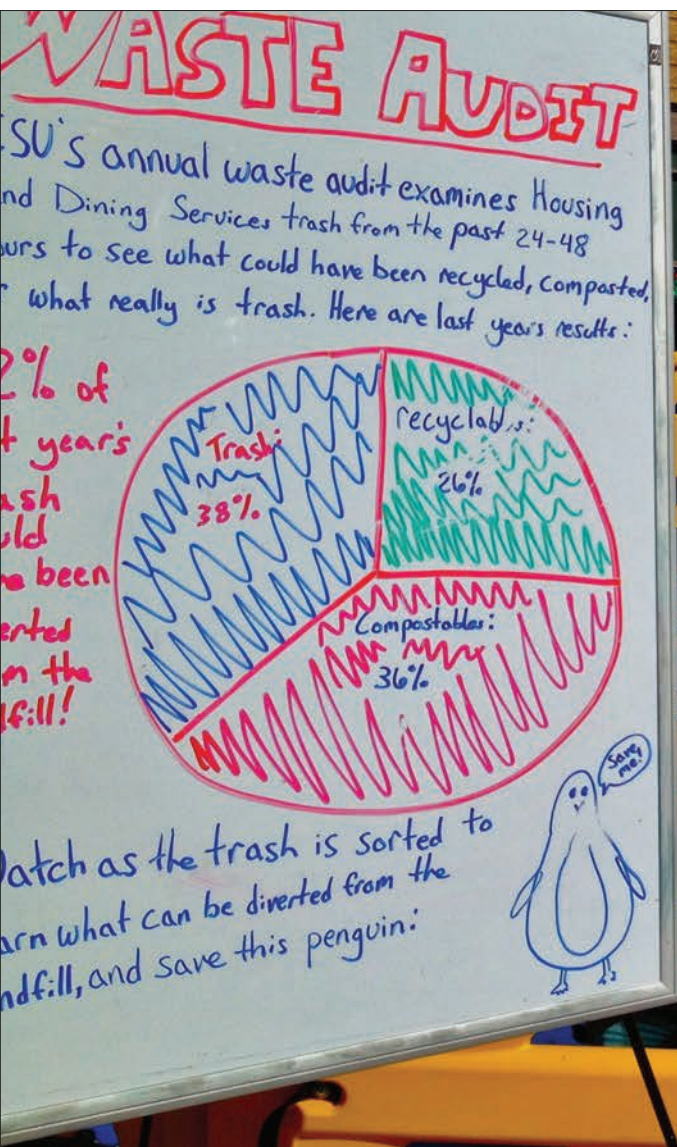 WASTE AUDIT
SU's annual waste audit examines Housing
nd Dining Services trash from the past 24-48
urs to see what could have been recycled, composted,
what really is trash. Here are last year's results:
2% of
t year's
ash
uld
e been
erted
m the
dfill!
Trash:
38%
recyclables:
26%
Compostables:
36%
Save
me!
atch as the trash is sorted to
arn what can be diverted from the
ndfill, and save this penguin!